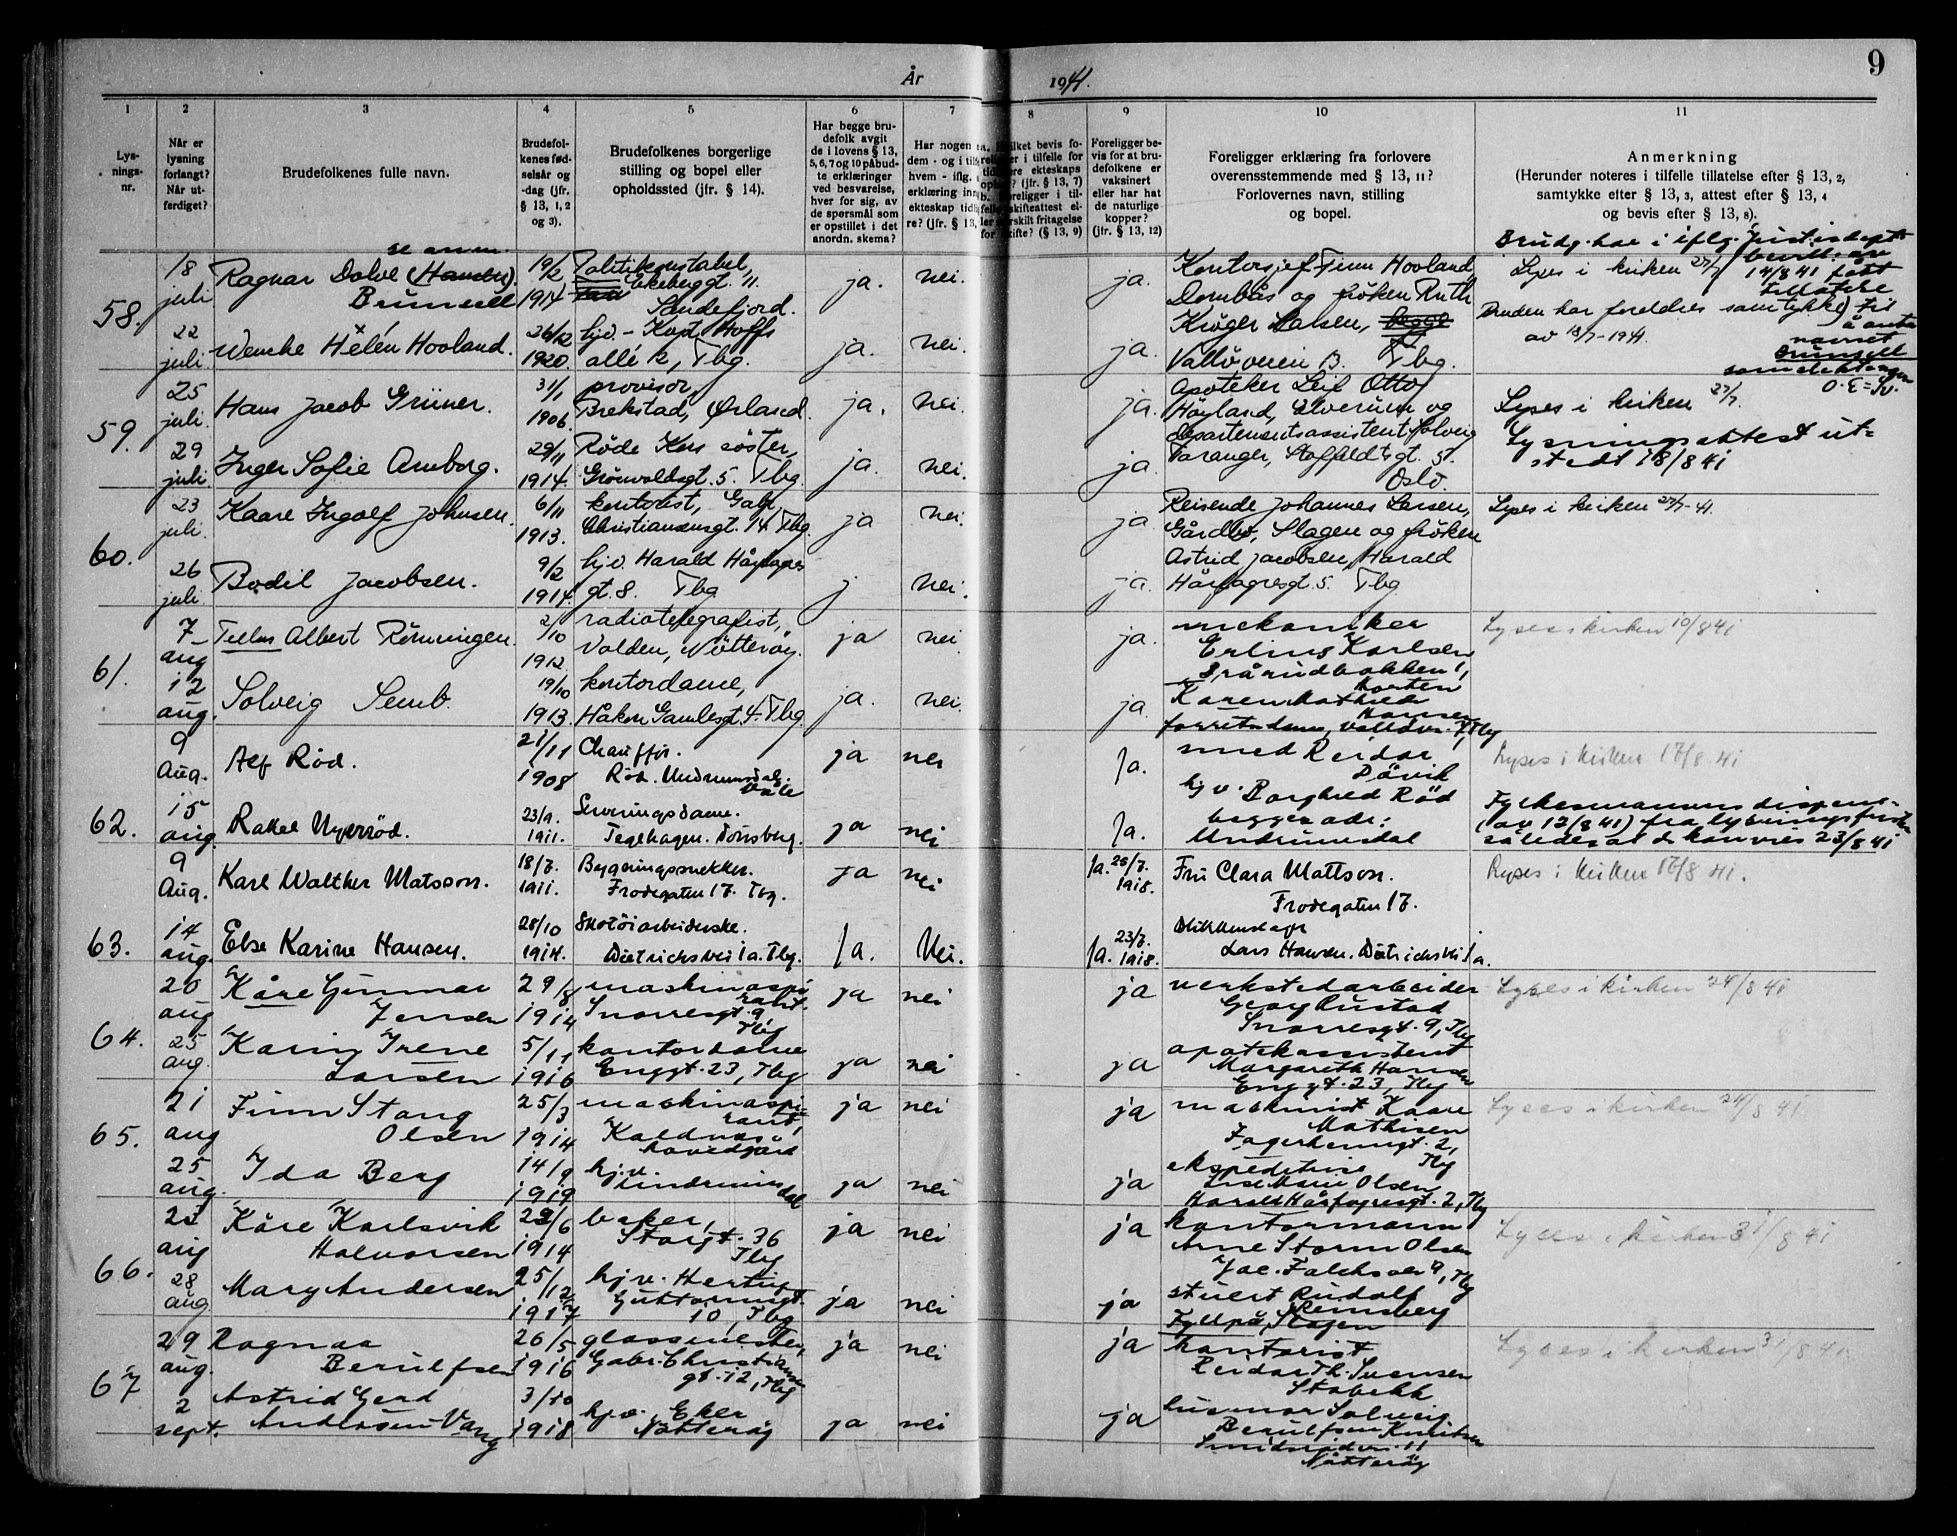 År 1941.
9
1 2 3 4 5 6 7 8 9 10 11
Lys-
nings-
nr.
Når er
lysning
forlangt?
Når ut-
ferdiget?
Brudefolkenes fulle navn.
Brudefol-
kenes fød-
selsår og
-dag (jfr.
§ 13, 1, 2
og 3).
Brudefolkenes borgerlige
stilling og bopel eller
opholdssted (jfr. § 14).
Har begge bru-
defolk avgit
de i lovens § 13,
5, 6, 7 og 10 påbud-
te erklæringer
ved besvarelse,
hver for sig, av
de spørsmål som
er opstillet i det
anordn. skema?
Har nogen
dem - og i til
hvem - iflg.
erklæring inn
ekteskap tid
re? (jfr. § 13,
Foreligger be-
vis for at bru-
defolkene er
vaksinert
eller har hat
de naturlige
kopper?
(jfr. § 13, 12)
Foreligger erklæring fra forlovere
overensstemmende med § 13, 11?
Forlovernes navn, stilling
og bopel.
Anmerkning
(Herunder noteres i tilfelle tillatelse efter § 13, 2,
samtykke efter § 13, 3, attest efter § 13, 4
og bevis efter § 13, 8).
58.
18
juli
se anm.
Ragnar Dolve (Hansen)
Brunsell
19/2
1914
Politikonstabel,
Ekebergt. 11.
Sandefjord.
ja. nei. ja.
Kontorsjef Finn Hovland
Dombås og frøken Ruth
Krøger Larsen, begge
Valløveien 13. Tbg.
Brudg. har i iflg. Justisdepts
bevill. av
14/8 41 fått
tillatelse
til
å anta
navnet
Brunsell
som slektsnavn
Lyses i kirken 27/7
Bruden har foreldres samtykke
av 18/7-1941.
22
juli
Wenche Helén Hovland.
26/12
1920.
hjv - Kapt. Hoffs
allé 12, Tbg.
ja. nei. ja.
59.
25
juli
Hans Jacob Grüner.
31/1
1906.
provisor,
Brekstad, Ørland.
ja. nei. ja.
Apoteker Leif Otto
Høyland, Elverum og
departementsassistent Solveig
Varanger, Stoffeldtsgt. 5.
Oslo.
Lyses i kirken 27/7.
Lysningsattest ut-
stedt 18/8 41
29
juli
Inger Sofie Amborg.
29/11
1914.
Røde Kors søster,
Grønvoldsgt. 5. Tbg.
ja. nei. ja.
60.
23
juli.
Kaare Ingolf Johnsen.
6/11
1913.
kontorist, Gabr.
Christiansensgt. 14 Tbg.
ja nei. ja.
Reisende Johannes Larsen,
Gårdbo, Slagen og frøken
Astrid Jacobsen, Harald
Hårfagresgt. 5. Tbg
Lyses i kirken 27/7-41.
26
juli.
Bodil Jacobsen.
9/2
1914.
hjv. Harald Hårfagres
gt. 8. Tbg
j nei. ja.
61.
7
aug
Tellus Albert Rønningen.
2/10
1912.
radiotelegrafist,
Volden, Nøtterøy.
ja nei ja.
mekaniker
Erling Karlsen
Horten
Karen Mathilde
Hansen
Lyses i kirken 10/8 41
12
aug.
Solveig Semb.
19/10
1913.
kontordame,
Håkon Gamlesgt. 4. Tbg.
ja. nei. ja.
62.
9
Aug.
Alf Rød.
21/11
1908
Chauffør.
Rød. Undrumsdal.
Våle
ja nei Ja.
smed Reidar
hjv. Borghild Rød
begges adr:
Undrumsdal
Lyses i kirken 17/8 41
15
aug.
Rakel Nyerrød.
23/9.
1911.
Serveringsdame.
Teglhagen. Tønsberg.
ja nei Ja.
Fylkesmannens dispens-
(av 12/8 41) fra lysningsfristen
således at de kan vies 23/8 41
63.
9
Aug.
Karl Walther Matsson.
18/7.
1911.
Bygningssnekker.
Frodegaten 17. Tbg.
ja nei Ja. 25/7. 1918.
Fru Clara Mattson.
Frodegaten 17.
Lyses i kirken 17/8 41.
14
aug.
Else Karine Hansen.
28/10
1914.
Skotøiarbeiderske.
Dietrichsvei 1a. Tbg.
Ja. Nei. Ja. 23/7. 1918.
Lars Hansen. Dietrichsvei 1a.
64.
20
aug
Kåre Gunnar
Jensen
29/8
1914
maskinaspi-
rant.
Snorresgt. 9,
Tbg
ja nei ja
verkstedarbeider
Georg Rustad
Snorresgt. 9, Tbg
Lyses i kirken 24/8 41
25
aug.
Karin Irene
Larsen
5/11
1916
kontordame
Enggt. 23, Tbg
ja nei ja
apotekassistent
Margareth Hansen
Enggt. 23, Tbg
65.
21
aug
Finn Stang
Olsen
25/3
1914
maskinaspi-
rant,
Kaldnes
hovedgård
ja nei ja
maskinist Kaare
Mathisen
Fagerheimgt. 2,
Tbg
Lyses i kirken 24/8 41
25
aug.
Ida Berg
14/9
1919
hjv.
Undrums
dal
ja nei ja
ekspeditrise
Lise Marie Olsen
Harald Hårfagresgt. 2, Tbg
66.
23
aug
Kåre Karlsvik
Halvorsen
23/6
1914
baker,
Storgt. 36
Tbg
ja nei ja
kontormann
Arne Storm Olsen
Jac. Falchsvei 9, Tbg
Lyses i kirken 31/8 41
28
aug
Mary Andersen
25/12
1917
hjv. Hertug
Guttormsgt.
10, Tbg
ja nei ja
stuert Rudolf
Remsberg
Fyllpå, Slagen
67
29
aug.
Ragnar
Berulfsen
26/5
1916
glassmester,
Gabr. Christiansens
gt. 12, Tbg
ja nei ja
kontorist
Reidar Th. Svensen
Stabekk
Lyses i kirken 31/8 41
2
sept.
Astrid Gerd
Andersen Vang
3/10
1918
hjv. Eker
Nøtterøy
ja nei ja
husmor Solveig
Berulfsen Knutsen
Smidsrødvn. 11
Nøtterøy